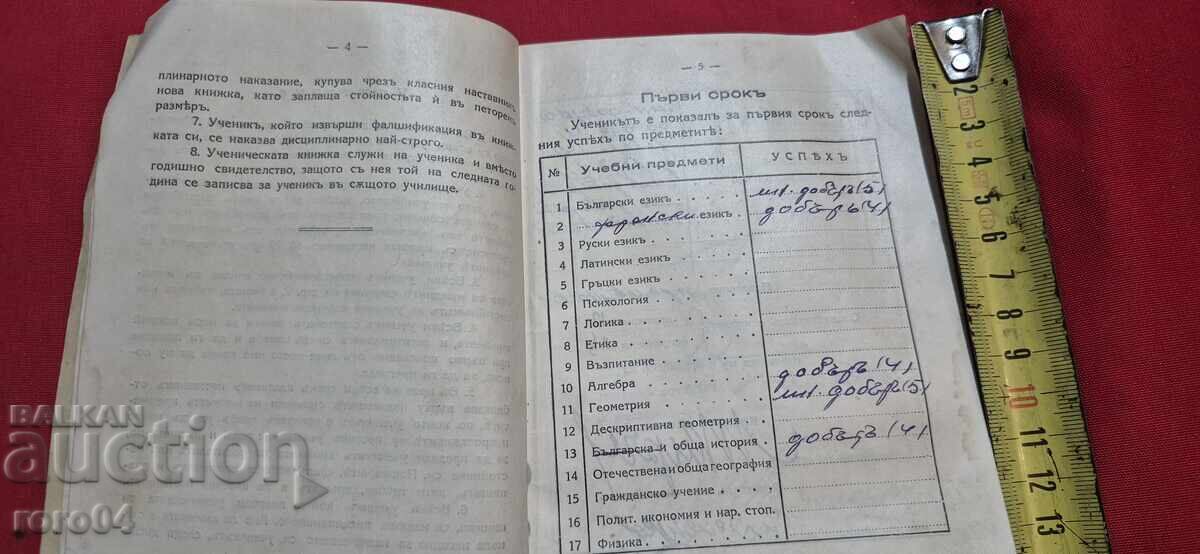 — 4 —
плинарното наказание, купува чрезъ класния наставникъ
нова книжка, като заплаща стойностьта ѝ въ петоренъ
размѣръ.
7. Ученикъ, който извърши фалшификация въ книж-
ката си, се наказва дисциплинарно най-строго.
8. Ученическата книжка служи на ученика и вмѣсто
годишно свидетелство, защото съ нея той на следната го-
дина се записва за ученикъ въ сѫщото училище.
— 5 —
Първи срокъ
Ученикътъ е показалъ за първия срокъ след-
ния успѣхъ по предметитѣ:
№ Учебни предмети УСПѢХЪ
1 Български езикъ . . . . мн. добъръ (5)
2 френски езикъ . добъръ (4)
3 Руски езикъ . . . . . .
4 Латински езикъ . . . . .
5 Гръцки езикъ . . . . . .
6 Психология . . . . . .
7 Логика . . . . . . .
8 Етика . . . . . . . .
9 Възпитание . . . . . .
10 Алгебра . . . . . . . добъръ (4)
11 Геометрия . . . . . . мн. добъръ (5)
12 Дескриптивна геометрия . .
13 Българска и обща история . добъръ (4)
14 Отечествена и обща география
15 Гражданско учение . . . .
16 Полит. икономия и нар. стоп.
17 Физика . . . . . . .
2 3 4 5 6 7 8 9 10 11 12 13
BALKAN
auction
roro04